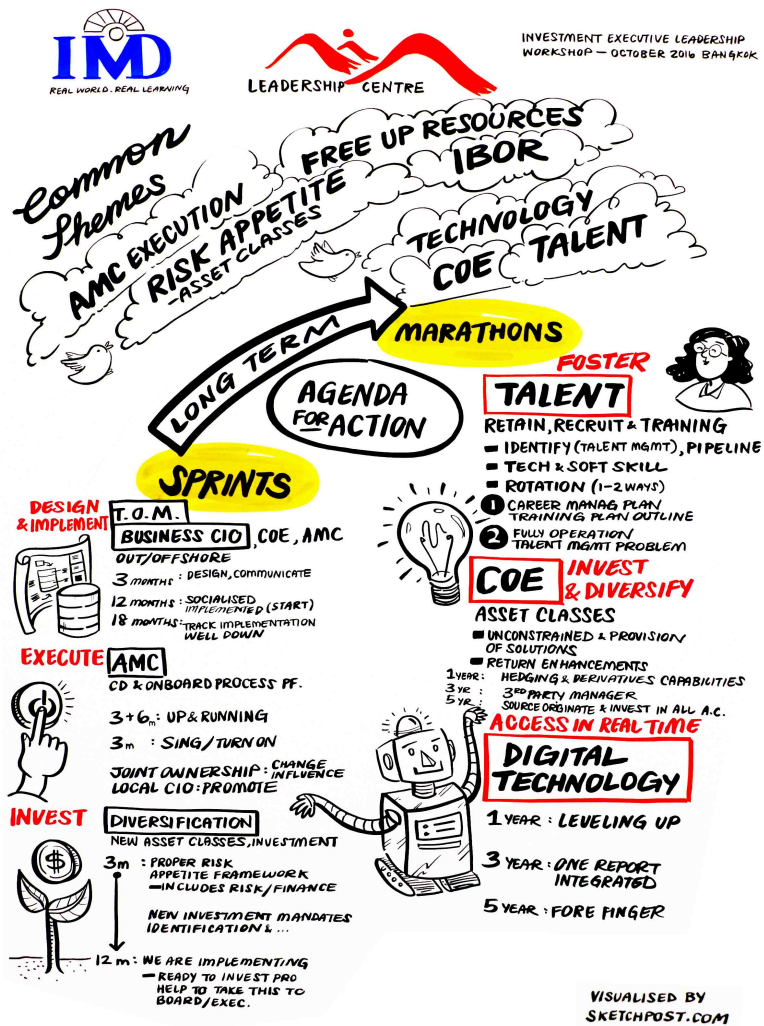 IMD
REAL WORLD. REAL LEARNING
LEADERSHIP CENTRE
INVESTMENT EXECUTIVE LEADERSHIP
WORKSHOP — OCTOBER 2016 BANGKOK
Common
Themes
FREE UP RESOURCES
IBOR
AMC EXECUTION
RISK APPETITE
- ASSET CLASSES
TECHNOLOGY
COE TALENT
LONG TERM
MARATHONS
AGENDA
FOR ACTION
SPRINTS
DESIGN
& IMPLEMENT
T.O.M.
BUSINESS CIO, COE, AMC
OUT/OFFSHORE
3 MONTHS : DESIGN, COMMUNICATE
12 MONTHS : SOCIALISED
IMPLEMENTED (START)
18 MONTHS : TRACK IMPLEMENTATION
WELL DOWN
EXECUTE AMC
CD & ONBOARD PROCESS PF.
3+6m : UP & RUNNING
3m : SING/TURN ON
JOINT OWNERSHIP : CHANGE
INFLUENCE
LOCAL CIO : PROMOTE
INVEST DIVERSIFICATION
NEW ASSET CLASSES, INVESTMENT
$
3m : PROPER RISK
APPETITE FRAMEWORK
— INCLUDES RISK/FINANCE
NEW INVESTMENT MANDATES
IDENTIFICATION & ...
12 m : WE ARE IMPLEMENTING
— READY TO INVEST PRO
HELP TO TAKE THIS TO
BOARD/EXEC.
FOSTER
TALENT
RETAIN, RECRUIT & TRAINING
- IDENTIFY (TALENT MGMT), PIPELINE
- TECH & SOFT SKILL
- ROTATION (1-2 WAYS)
1 CAREER MANAG PLAN
TRAINING PLAN OUTLINE
2 FULLY OPERATION
TALENT MGMT PROBLEM
COE INVEST
& DIVERSIFY
ASSET CLASSES
- UNCONSTRAINED & PROVISION
OF SOLUTIONS
- RETURN ENHANCEMENTS
1 YEAR : HEDGING & DERIVATIVES CAPABILITIES
3 YR : 3RD PARTY MANAGER
5 YR : SOURCE ORIGINATE & INVEST IN ALL A.C.
ACCESS IN REAL TIME
DIGITAL
TECHNOLOGY
1 YEAR : LEVELING UP
3 YEAR : ONE REPORT
INTEGRATED
5 YEAR : FORE FINGER
VISUALISED BY
SKETCHPOST.COM